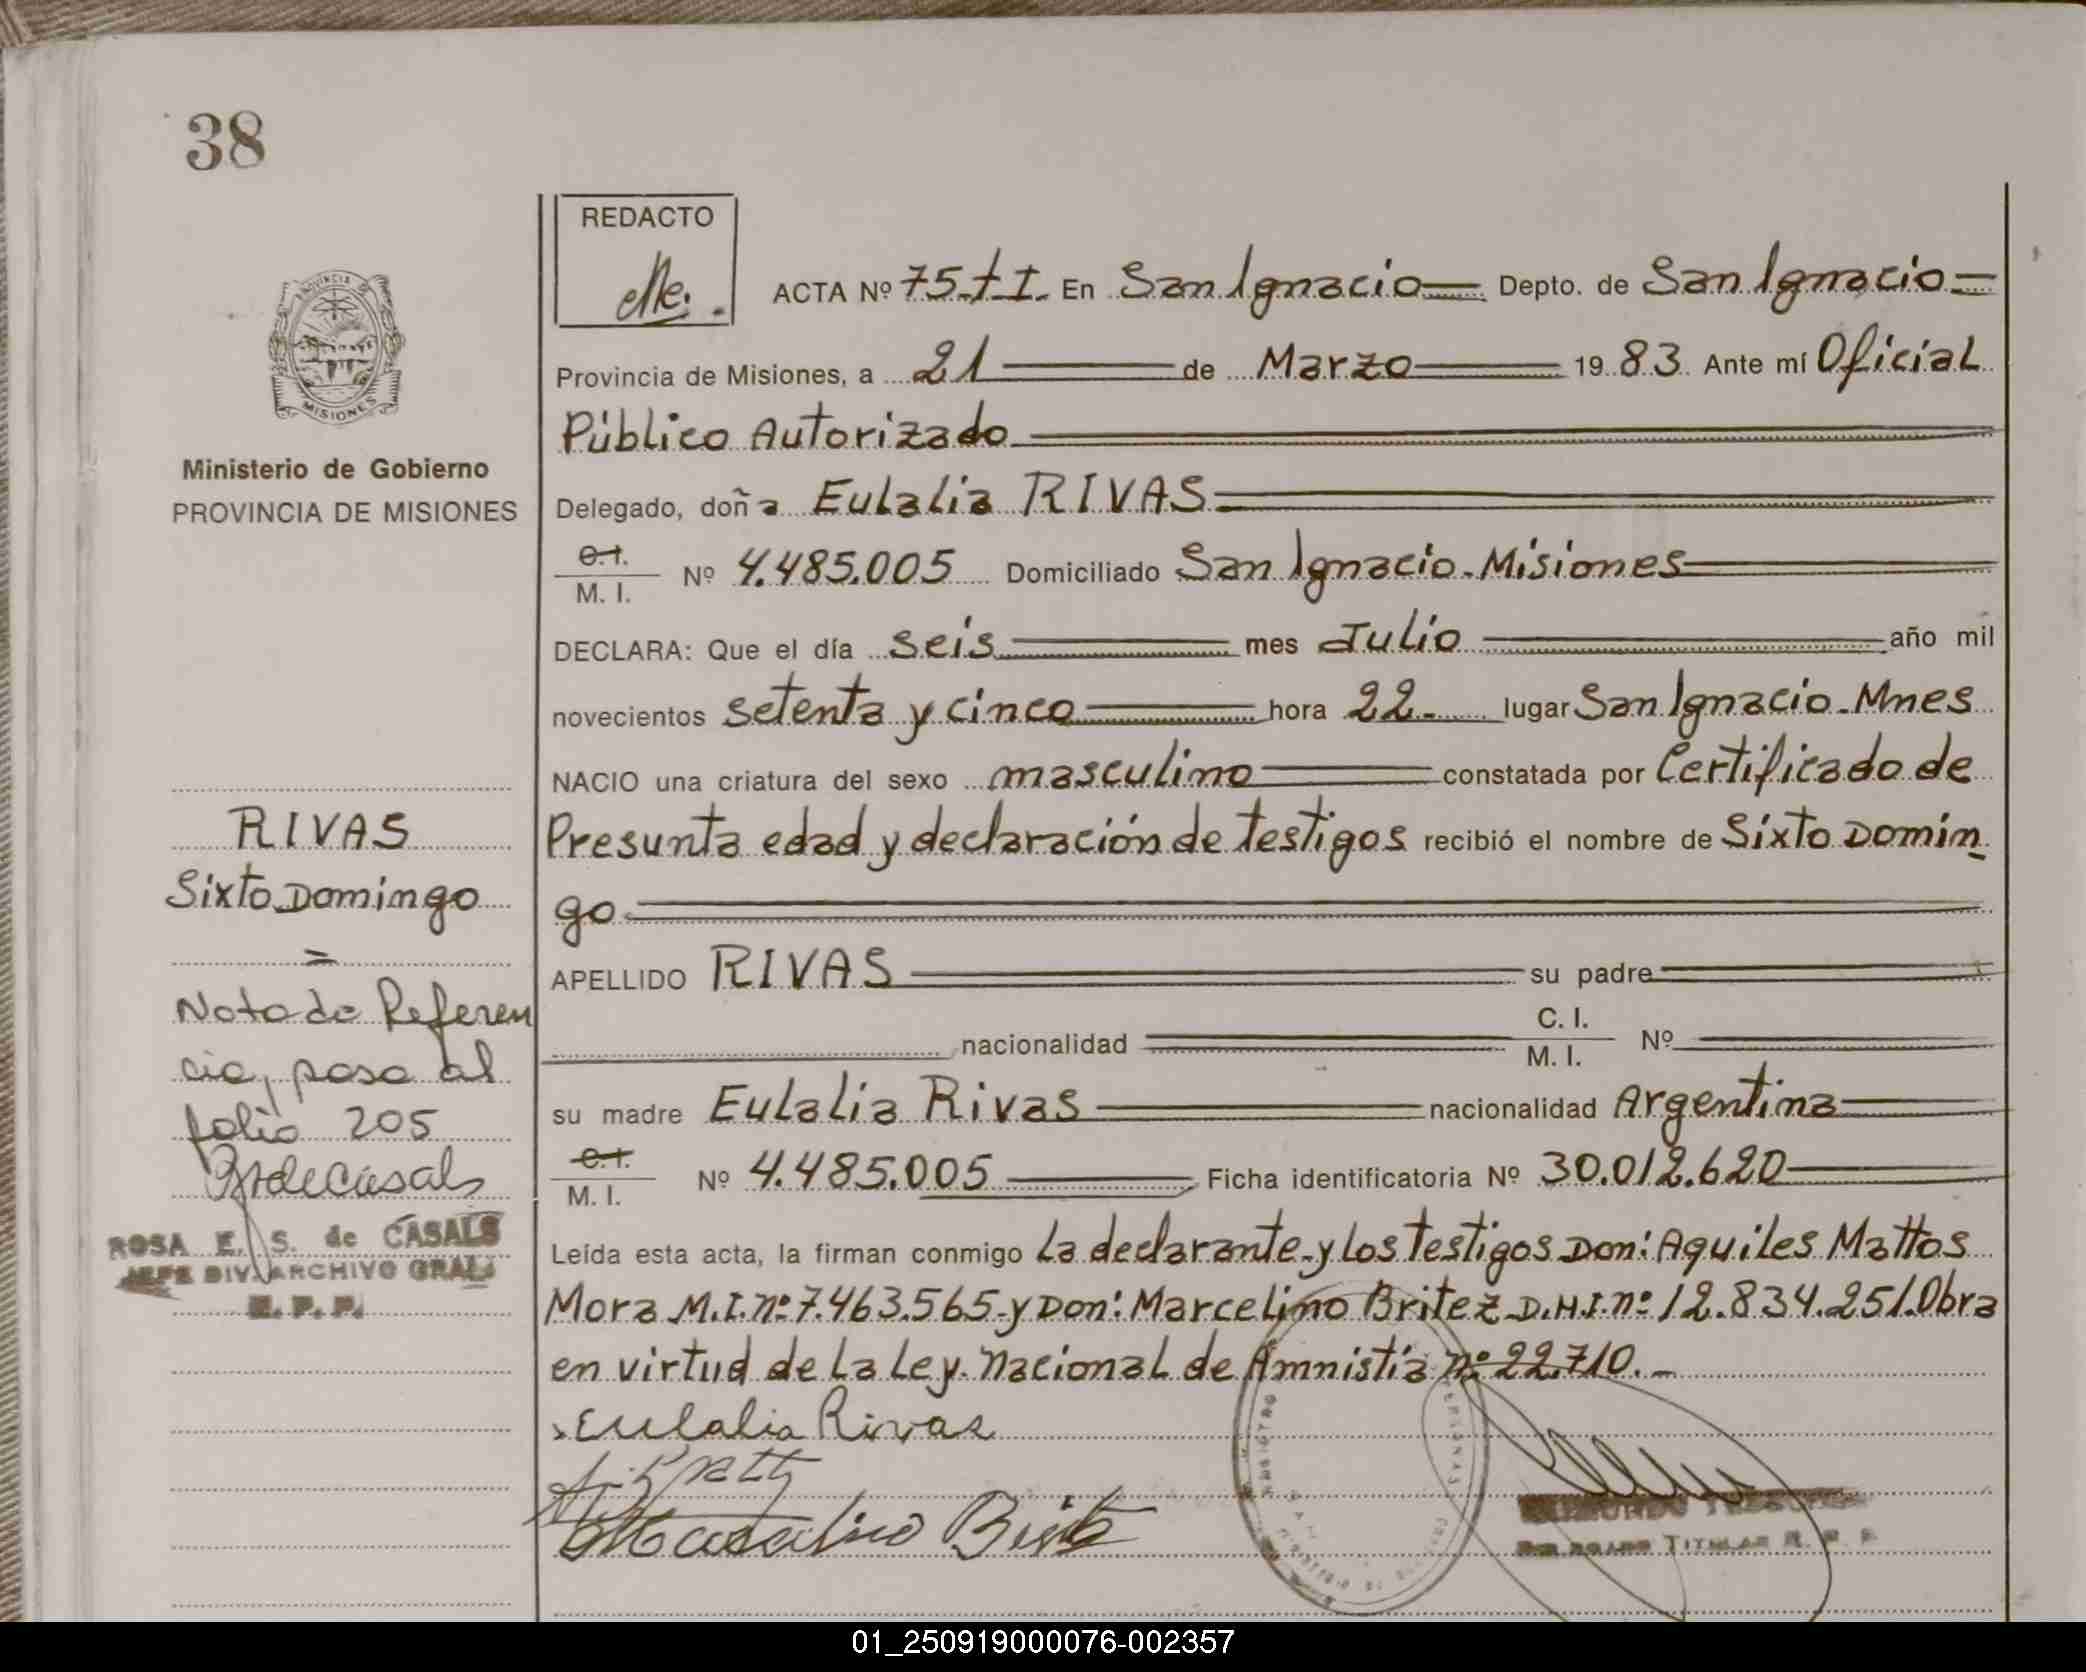 38
REDACTO
PROVINCIA
MISIONES
Ministerio de Gobierno
PROVINCIA DE MISIONES
ACTA Nº 75-tI. En San Ignacio Depto. de San Ignacio
Provincia de Misiones, a 21 de Marzo 1983 Ante mí Oficial
Público Autorizado
Delegado, doña Eulalia RIVAS
C.I.
M. I. Nº 4.485.005 Domiciliado San Ignacio-Misiones
DECLARA: Que el día seis mes Julio año mil
novecientos setenta y cinco hora 22- lugar San Ignacio-Mnes
NACIO una criatura del sexo masculino constatada por Certificado de
Presunta edad y declaración de testigos recibió el nombre de Sixto Domin
go
APELLIDO RIVAS su padre
nacionalidad C. I.
M. I. Nº
su madre Eulalia Rivas nacionalidad Argentina
C.I.
M. I. Nº 4.485.005 Ficha identificatoria Nº 30.012.620
Leída esta acta, la firman conmigo La declarante-y Los testigos Don: Aquiles Mattos
Mora M.I.nº7.463.565-y Don: Marcelino Britez D.N.I.nº 12.834.251.Obra
en virtud de La Ley Nacional de Amnistía nº22.710.-
Eulalia Rivas
Marcelino Brite
RIVAS
Sixto Domingo
=
Nota de Referen
cia, pasa al
folio 205
RdeCasals
ROSA E. S. de CASALS
JEFE DIV. ARCHIVO GRAL.
R. P. P.
REGISTRO
PERSONAS
TITULAR R. P. P.
01_250919000076-002357